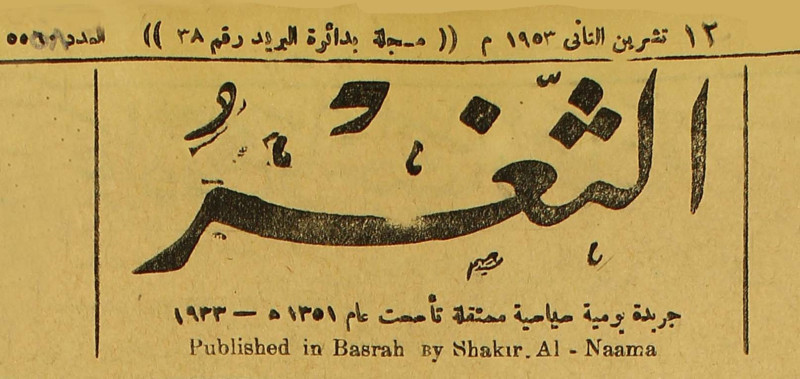 ١٢ تشرين الثاني ١٩٥٣ م (( مسجلة بدائرة البريد رقم ٣٨ )) العدد
الثغر
جريدة يومية سياسية مستقلة تأسست عام ١٣٥١ ه — ١٩٣٣
Published in Basrah By Shakir. Al - Naama